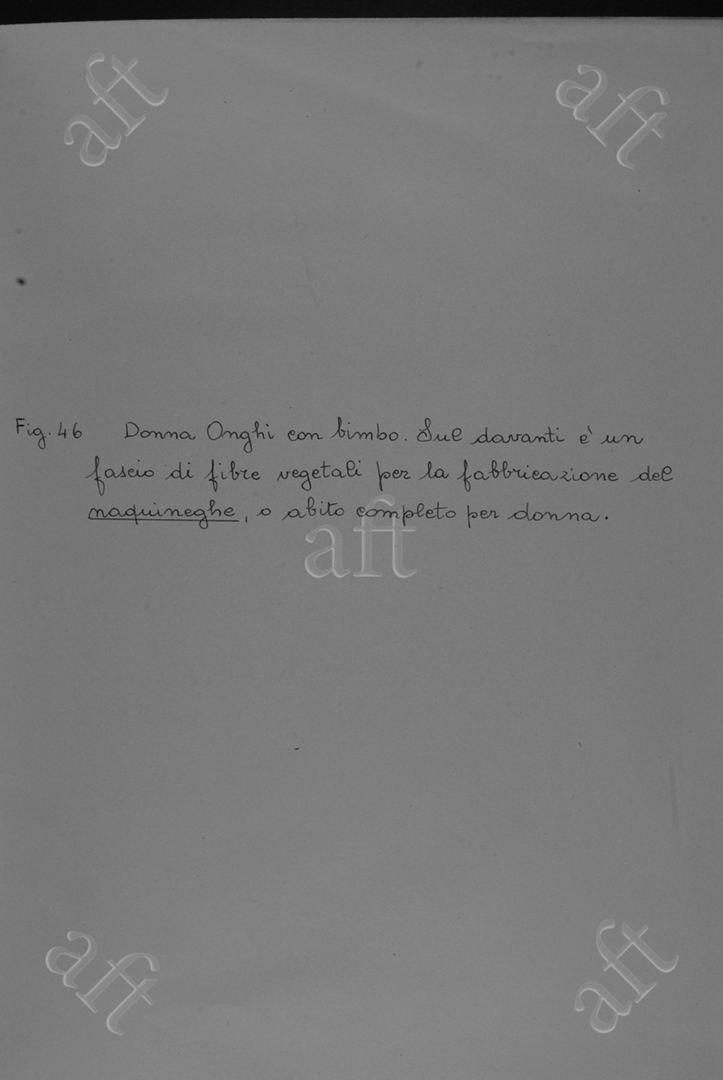 aft aft
Fig. 46 Donna Onghi con bimbo. Sul davanti è un
fascio di fibre vegetali per la fabbricazione del
naquineghe, o abito completo per donna.
aft
aft aft